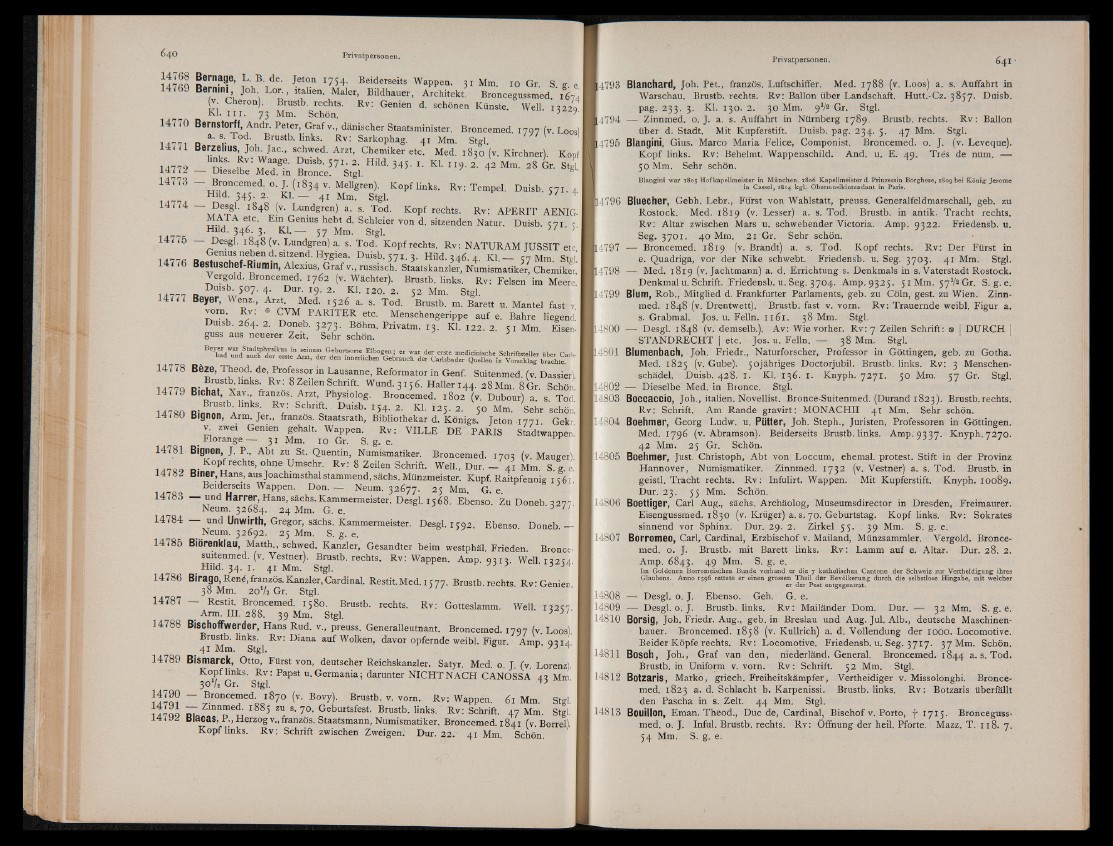 640 Privatpersonen.
14768 Bernage, L. B. de. Jeton 1754. Beiderseits Wappen. 31 Mm. 10 Gr. S. g. e.
14769 Bernini, Joh. Lor., italien. Maler, Bildhauer, Architekt. Broncegussmed. 1674
(v. Cheron). Brustb. rechts. Rv: Genien d. schönen Künste. Well. 13229.
Kl. 111. 73 Mm. Schön.
14770 Bernstorff, Andr. Peter, Graf v., dänischer Staatsminister. Broncemed. 1797 (v. Loos)
a. s. Tod. Brustb. links. Rv: Sarkophag. 41 Mm. Stgl.
14771 Berzelius, Joh. Jac., schwed. Arzt, Chemiker etc. Med. 1830 (v. Kirchner). Kopf
links. Rv: Waage. Duisb. 571. 2. Hild. 345. 1. Kl. 119. 2. 42 Mm. 28 Gr. Stgl.
14772 — Dieselbe Med. in Bronce. Stgl.
14773 — Broncemed. o. J. (1834 v. Mellgren). Kopf links. Rv: Tempel. Duisb. 571. 4.
Hild. 345. 2. Kl. — 41 Mm. Stgl.
14774 — Desgl. 1848 (v. Lundgren) a. s. Tod. Kopf rechts. Rv: APERIT AENIG-
MATA etc. Ein Genius hebt d. Schleier von d. sitzenden Natur. Duisb. 571. 5.
Hild. 346. 3. Kl. — 57 Mm. Stgl.
14775 — Desgl. 1848 (v. Lundgren) a. s. Tod. Kopf rechts, Rv: NATURAM JUSSIT etc.
Genius neben d. sitzend. Hygiea. Duisb. 571. 3. Hild. 346. 4. Kl. — 57 Mm. Stgl.
14776 Bestuschef-Riumin, Alexius, Graf v., russisch. Staatskanzler, Numismatiker, Chemiker.
Vergold. Broncemed. 1762 (v. Wächter). Brustb. links. Rv: Felsen im Meere.
Duisb. 507. 4. Dur. 19. 2. Kl. 120. 2. 52 Mm. Stgl.
14777 Beyer, Wenz., Arzt, Med. 1526 a. s. Tod. Brustb. m. Barett u. Mantel fast v.
vorn. Rv: ® CVM PARITER etc. Menschengerippe auf e. Bahre liegend.
Duisb. 264. 2. Doneb. 3273. Böhm. Privatm. 13. Kl. 122. 2. 51 Mm. Eisen-
guss aus neuerer Zeit. Sehr schön.
Beyer war Stadtphysikus in seinem Geburtsorte Elbogen; er war der erste medicinische Schriftsteller über Carls-
bad und auch der erste Arzt, der den innerlichen Gebrauch der Carlsbader Quellen in Vorschlag brachte.
14778 Bèze, Theod. de, Professor in Lausanne, Reformator in Genf. Suitenmed. (v. Dassier).
Brustb. links. Rv: 8 Zeilen Schrift. Wund. 3156. Haller 144. 28 Mm. 8 Gr. Schön.
14779 Bichat, Xav., französ. Arzt, Physiolog. Broncemed. 1802 (v. Dubour) a. s. Tod.
Brustb. links. Rv: Schrift. Duisb. 154. 2. Kl. 125. 2. 50 Mm. Sehr schön.
14780 Bignon, Arm. Jer., französ. Staatsrath, Bibliothekar d. Königs. Jeton 1771. Gekr.
v. zwei Genien gehalt. Wappen. Rv: VILLE DE PARIS Stadtwappen.
Florange — 31 Mm. 10 Gr. S. g. e.
14781 Bignon, J. P., Abt zu St. Quentin, Numismatiker. Broncemed. 1703 (v. Mauger).
Kopf rechts, ohne Umschr. Rv: 8 Zeilen Schrift. Well., Dur. — 41 Mm. S. g. e.
14782 Biner, Hans, aus Joachimsthal stammend, sächs. Münzmeister. Kupf. Raitpfennig 1561.
Beiderseits Wappen. Don. — Neum. 32677. 25 Mm. G. e.
14783 — und Harrer, Hans, sächs. Kammermeister. Desgl. 1568. Ebenso. Zu Doneb. 3277.
Neum. 32684. 24 Mm. G. e.
14784 — und Unwirth, Gregor, sächs. Kammermeister. Desgl. 1592. Ebenso. Doneb. —
Neum. 32692. 25 Mm. S. g. e.
14785 Biörenklau, Matth., schwed. Kanzler, Gesandter beim westphäl. Frieden. Bronce-
suitenmed. (v. Vestner). Brustb. rechts. Rv: Wappen. Amp. 9313. Well. 13254.
Hild. 34. 1. 41 Mm. Stgl.
14786 Birago, René, französ. Kanzler, Cardinal. Restit. Med. 1577. Brustb. rechts. Rv: Genien.
38 Mm. 20½ Gr. Stgl.
14787 — Restit. Broncemed. 1580. Brustb. rechts. Rv: Gotteslamm. Well. 13257.
Arm. III. 288. 39 Mm. Stgl.
14788 Bischoffwerder, Hans Rud. v., preuss. Generallieutnant. Broncemed. 1797 (v. Loos).
Brustb. links. Rv: Diana auf Wolken, davor opfernde weibl. Figur. Amp. 9314.
41 Mm. Stgl.
14789 Bismarck, Otto, Fürst von, deutscher Reichskanzler. Satyr. Med. o. J. (v. Lorenz).
Kopf links. Rv: Papst u. Germania; darunter NICHT NACH CANOSSA 43 Mm.
30½ Gr. Stgl.
14790 — Broncemed. 1870 (v. Bovy). Brustb. v. vorn. Rv: Wappen. 61 Mm. Stgl.
14791 — Zinnmed. 1885 zu s. 70. Geburtsfest. Brustb. links. Rv: Schrift. 47 Mm. Stgl.
14792 Blacas, P., Herzog v., französ. Staatsmann, Numismatiker. Broncemed. 1841 (v. Borrel).
Kopf links. Rv: Schrift zwischen Zweigen. Dur. 22. 41 Mm. Schön.
Privatpersonen. 641
14793 Blanchard, Joh. Pet., französ. Luftschiffer. Med. 1788 (v. Loos) a. s. Auffahrt in
Warschau. Brustb. rechts. Rv: Ballon über Landschaft. Hutt.-Cz. 3857. Duisb.
pag. 233. 3. Kl. 130. 2. 30 Mm. 9½ Gr. Stgl.
14794 — Zinnmed. o. J. a. s. Auffahrt in Nürnberg 1789. Brustb. rechts. Rv: Ballon
über d. Stadt. Mit Kupferstift. Duisb. pag. 234. 5. 47 Mm. Stgl.
14795 Blangini, Gius. Marco Maria Felice, Componist. Broncemed. o. J. (v. Leveque).
Kopf links. Rv: Behelmt. Wappenschild. And. u. E. 49. Trés de num. —
50 Mm. Sehr schön.
Blangini war 1805 Hofkapellmeister in München, 1806 Kapellmeister d. Prinzessin Borghese, 1809 bei König Jerome
in Cassel, 1814 kgl. Obermusikintendant in Paris.
14796 Bluecher, Gebh. Lebr., Fürst von Wahlstatt, preuss. Generalfeldmarschall, geb. zu
Rostock. Med. 1819 (v. Lesser) a. s. Tod. Brustb. in antik. Tracht rechts,
Rv: Altar zwischen Mars u. schwebender Victoria. Amp. 9322. Friedensb. u.
Seg. 3701. 40 Mm. 21 Gr. Sehr schön.
14797 — Broncemed. 1819 (v. Brandt) a. s. Tod. Kopf rechts. Rv: Der Fürst in
e. Quadriga, vor der Nike schwebt. Friedensb. u. Seg. 3703. 41 Mm. Stgl.
14798 — Med. 1819 (v. Jachtmann) a. d. Errichtung s. Denkmals in s. Vaterstadt Rostock.
Denkmal u. Schrift. Friedensb. u. Seg. 3704. Amp. 9325. 51 Mm. 57½ Gr. S. g. e.
14799 Blum, Rob., Mitglied d. Frankfurter Parlaments, geb. zu Cöln, gest. zu Wien. Zinn-
med. 1848 (v. Drentwett). Brustb. fast v. vorn. Rv: Trauernde weibl. Figur a.
s. Grabmal. Jos. u. Felln. 1161. 38 Mm. Stgl.
14800 — Desgl. 1848 (v. demselb.). Av: Wie vorher. Rv: 7 Zeilen Schrift: ⊕ | DURCH |
STANDRECHT | etc. Jos. u. Felln. — 38 Mm. Stgl.
14801 Blumenbach, Joh. Friedr., Naturforscher, Professor in Göttingen, geb. zu Gotha.
Med. 1825 (v. Gube). 50jähriges Doctorjubil. Brustb. links. Rv: 3 Menschen-
schädel. Duisb. 428. 1. Kl. 136. 1. Knyph. 7271. 50 Mm. 57 Gr. Stgl.
14802 — Dieselbe Med. in Bronce. Stgl.
14803 Boccaccio, Joh., italien. Novellist. Bronce-Suitenmed. (Durand 1823). Brustb. rechts.
Rv: Schrift. Am Rande gravirt: MONACHII 41 Mm. Sehr schön.
14804 Boehmer, Georg Ludw. u. Pütter, Joh. Steph., Juristen, Professoren in Göttingen.
Med. 1796 (v. Abramson). Beiderseits Brustb. links. Amp. 9337. Knyph. 7270.
42 Mm. 25 Gr. Schön.
14805 Boehmer, Just. Christoph, Abt von Loccum, ehemal. protest. Stift in der Provinz
Hannover, Numismatiker. Zinnmed. 1732 (v. Vestner) a. s. Tod. Brustb. in
geistl. Tracht rechts. Rv: Infulirt. Wappen. Mit Kupferstift. Knyph. 10089.
Dur. 23. 55 Mm. Schön.
14806 Boettiger, Carl Aug., sächs. Archäolog, Museumsdirector in Dresden, Freimaurer.
Eisengussmed. 1830 (v. Krüger) a. s. 70. Geburtstag. Kopf links. Rv: Sokrates
sinnend vor Sphinx. Dur. 29. 2. Zirkel 55. 39 Mm. S. g. e.
14807 Borromeo, Carl, Cardinal, Erzbischof v. Mailand, Münzsammler. Vergold. Bronce-
med. o. J. Brustb. mit Barett links. Rv: Lamm auf e. Altar. Dur. 28. 2.
Amp. 6843. 49 Mm. S. g. e.
Im Goldenen Borromeischen Bunde verband er die 7 katholischen Cantone der Schweiz zur Vertheidigung ihres
Glaubens. Anno 1596 rettete er einen grossen Theil der Bevölkerung durch die selbstlose Hingabe, mit welcher
er der Pest entgegentrat.
14808 — Desgl. o. J. Ebenso. Geh. G. e.
14809 — Desgl. o. J. Brustb. links. Rv: Mailänder Dom. Dur. — 32 Mm. S. g. e.
14810 Borsig, Joh. Friedr. Aug., geb. in Breslau und Aug. Jul. Alb., deutsche Maschinen-
bauer. Broncemed. 1858 (v. Kullrich) a. d. Vollendung der 1000. Locomotive.
Beider Köpfe rechts. Rv: Locomotive. Friedensb. u. Seg. 3717. 37 Mm. Schön.
14811 Bosch, Joh., Graf van den, niederländ. General. Broncemed. 1844 a. s. Tod.
Brustb. in Uniform v. vorn. Rv: Schrift. 52 Mm. Stgl.
14812 Botzaris, Marko, griech. Freiheitskämpfer, Vertheidiger v. Missolonghi. Bronce-
med. 1823 a. d. Schlacht b. Karpenissi. Brustb. links. Rv: Botzaris überfällt
den Pascha in s. Zelt. 44 Mm. Stgl.
14813 Bouillon, Eman. Theod., Duc de, Cardinal, Bischof v. Porto, † 1715. Bronceguss-
med. o. J. Inful. Brustb. rechts. Rv: Öffnung der heil. Pforte. Mazz. T. 118. 7.
54 Mm. S. g. e.